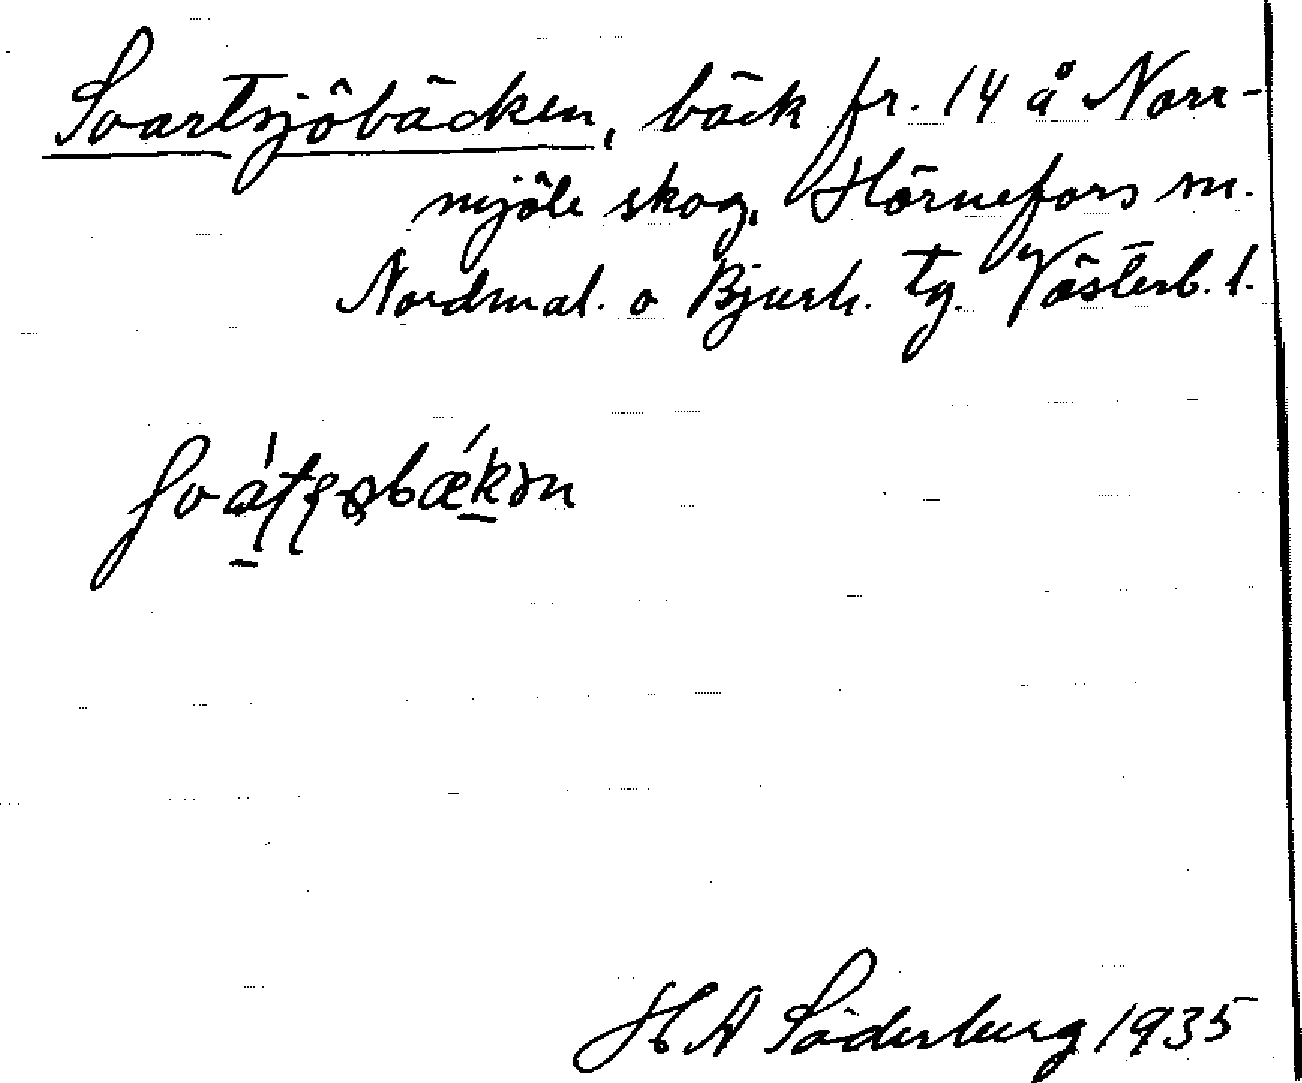 Svartsjöbäcken, bäck fr. 14 å Norr-
mjöle skog, Hörnefors sn.
Nordmal. o Bjurh. tg. Västerb. l.
H A Söderberg 1935